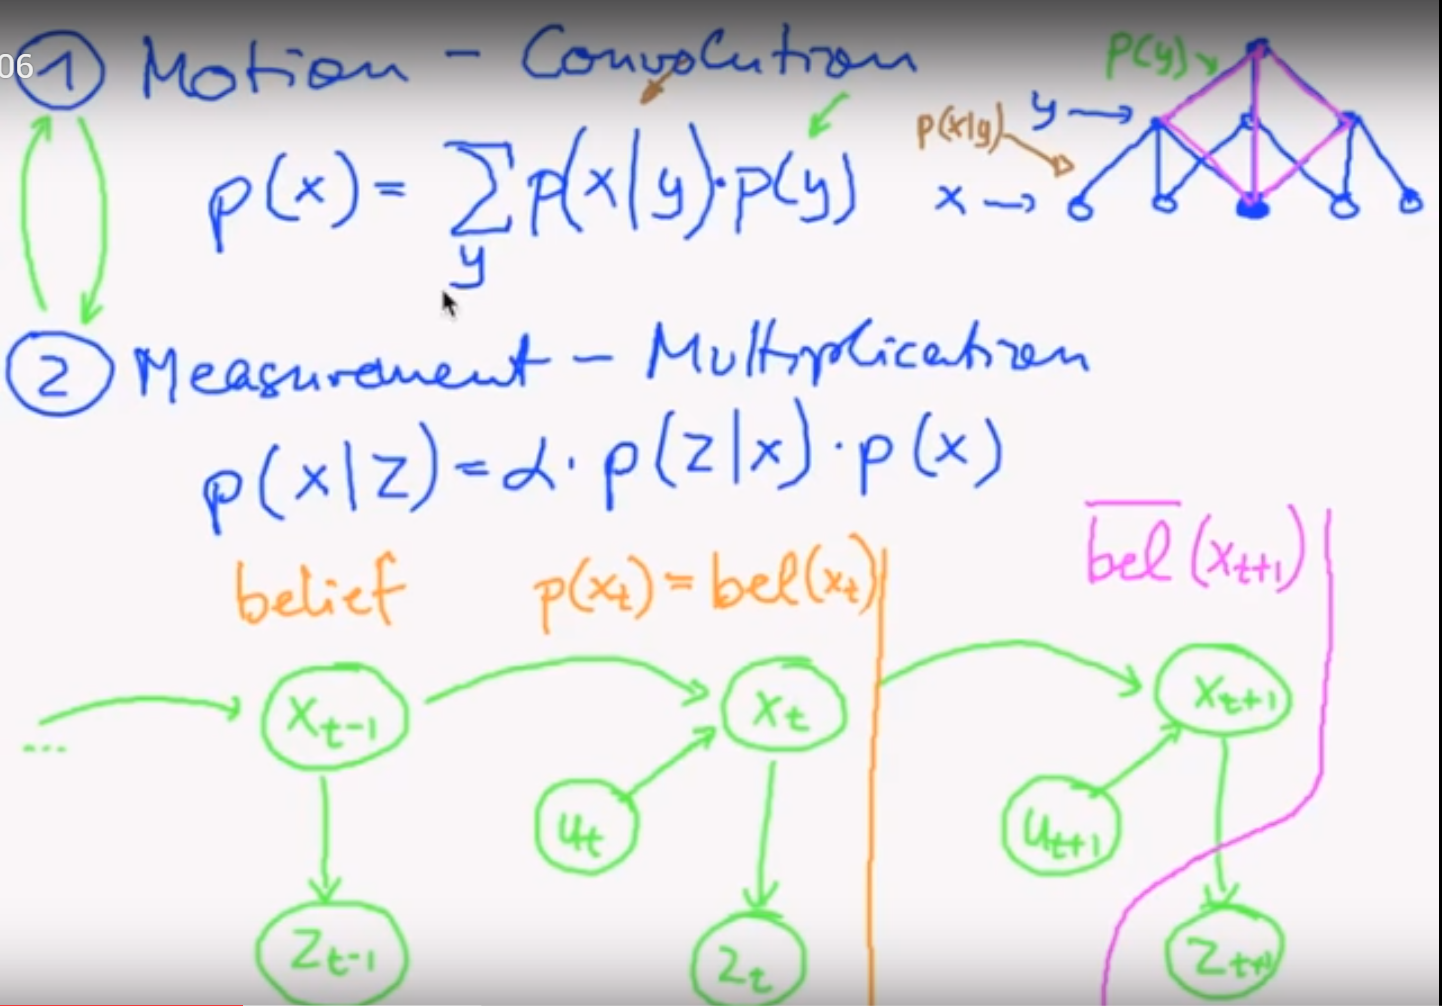 06
① Motion - Convolution
p(x) = ∑ p(x|y)·p(y)
y
P(y)
y →
p(x|y)
x →
② Measurement - Multiplication
p(x|z) = α· p(z|x)·p(x)
belief p(xₜ) = bel(xₜ) b̅e̅l̅(xₜ₊₁)
... xₜ₋₁ xₜ xₜ₊₁
uₜ uₜ₊₁
zₜ₋₁ zₜ zₜ₊₁